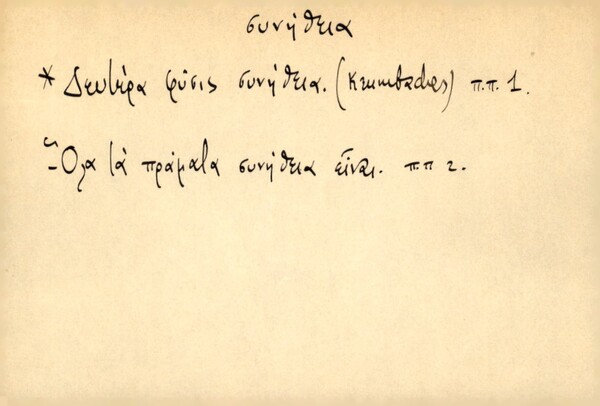 συνήθεια
* Δευτέρα φύσις συνήθεια. (Krumbacher) π.π. 1.
Ὅλα τὰ πράματα συνήθεια εἶναι. π.π 2.